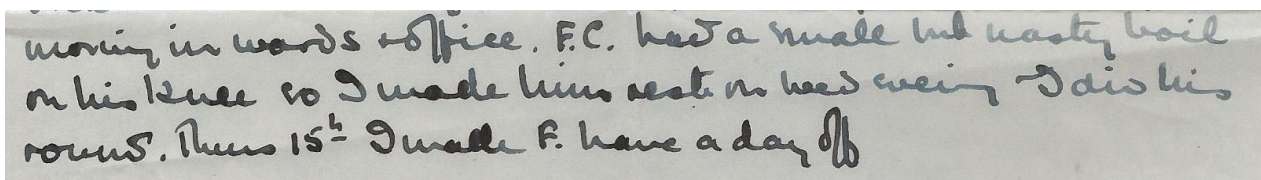 morning in wards & office. F.C. had a small but nasty boil
on his knee so I made him rest on bed evening & I did his
round. Thurs 15th I made F. have a day off